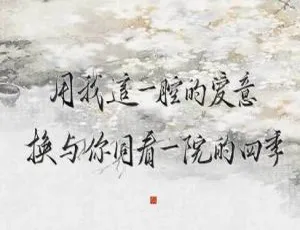 用我這一腔的爱意
换与你同看一院的四季